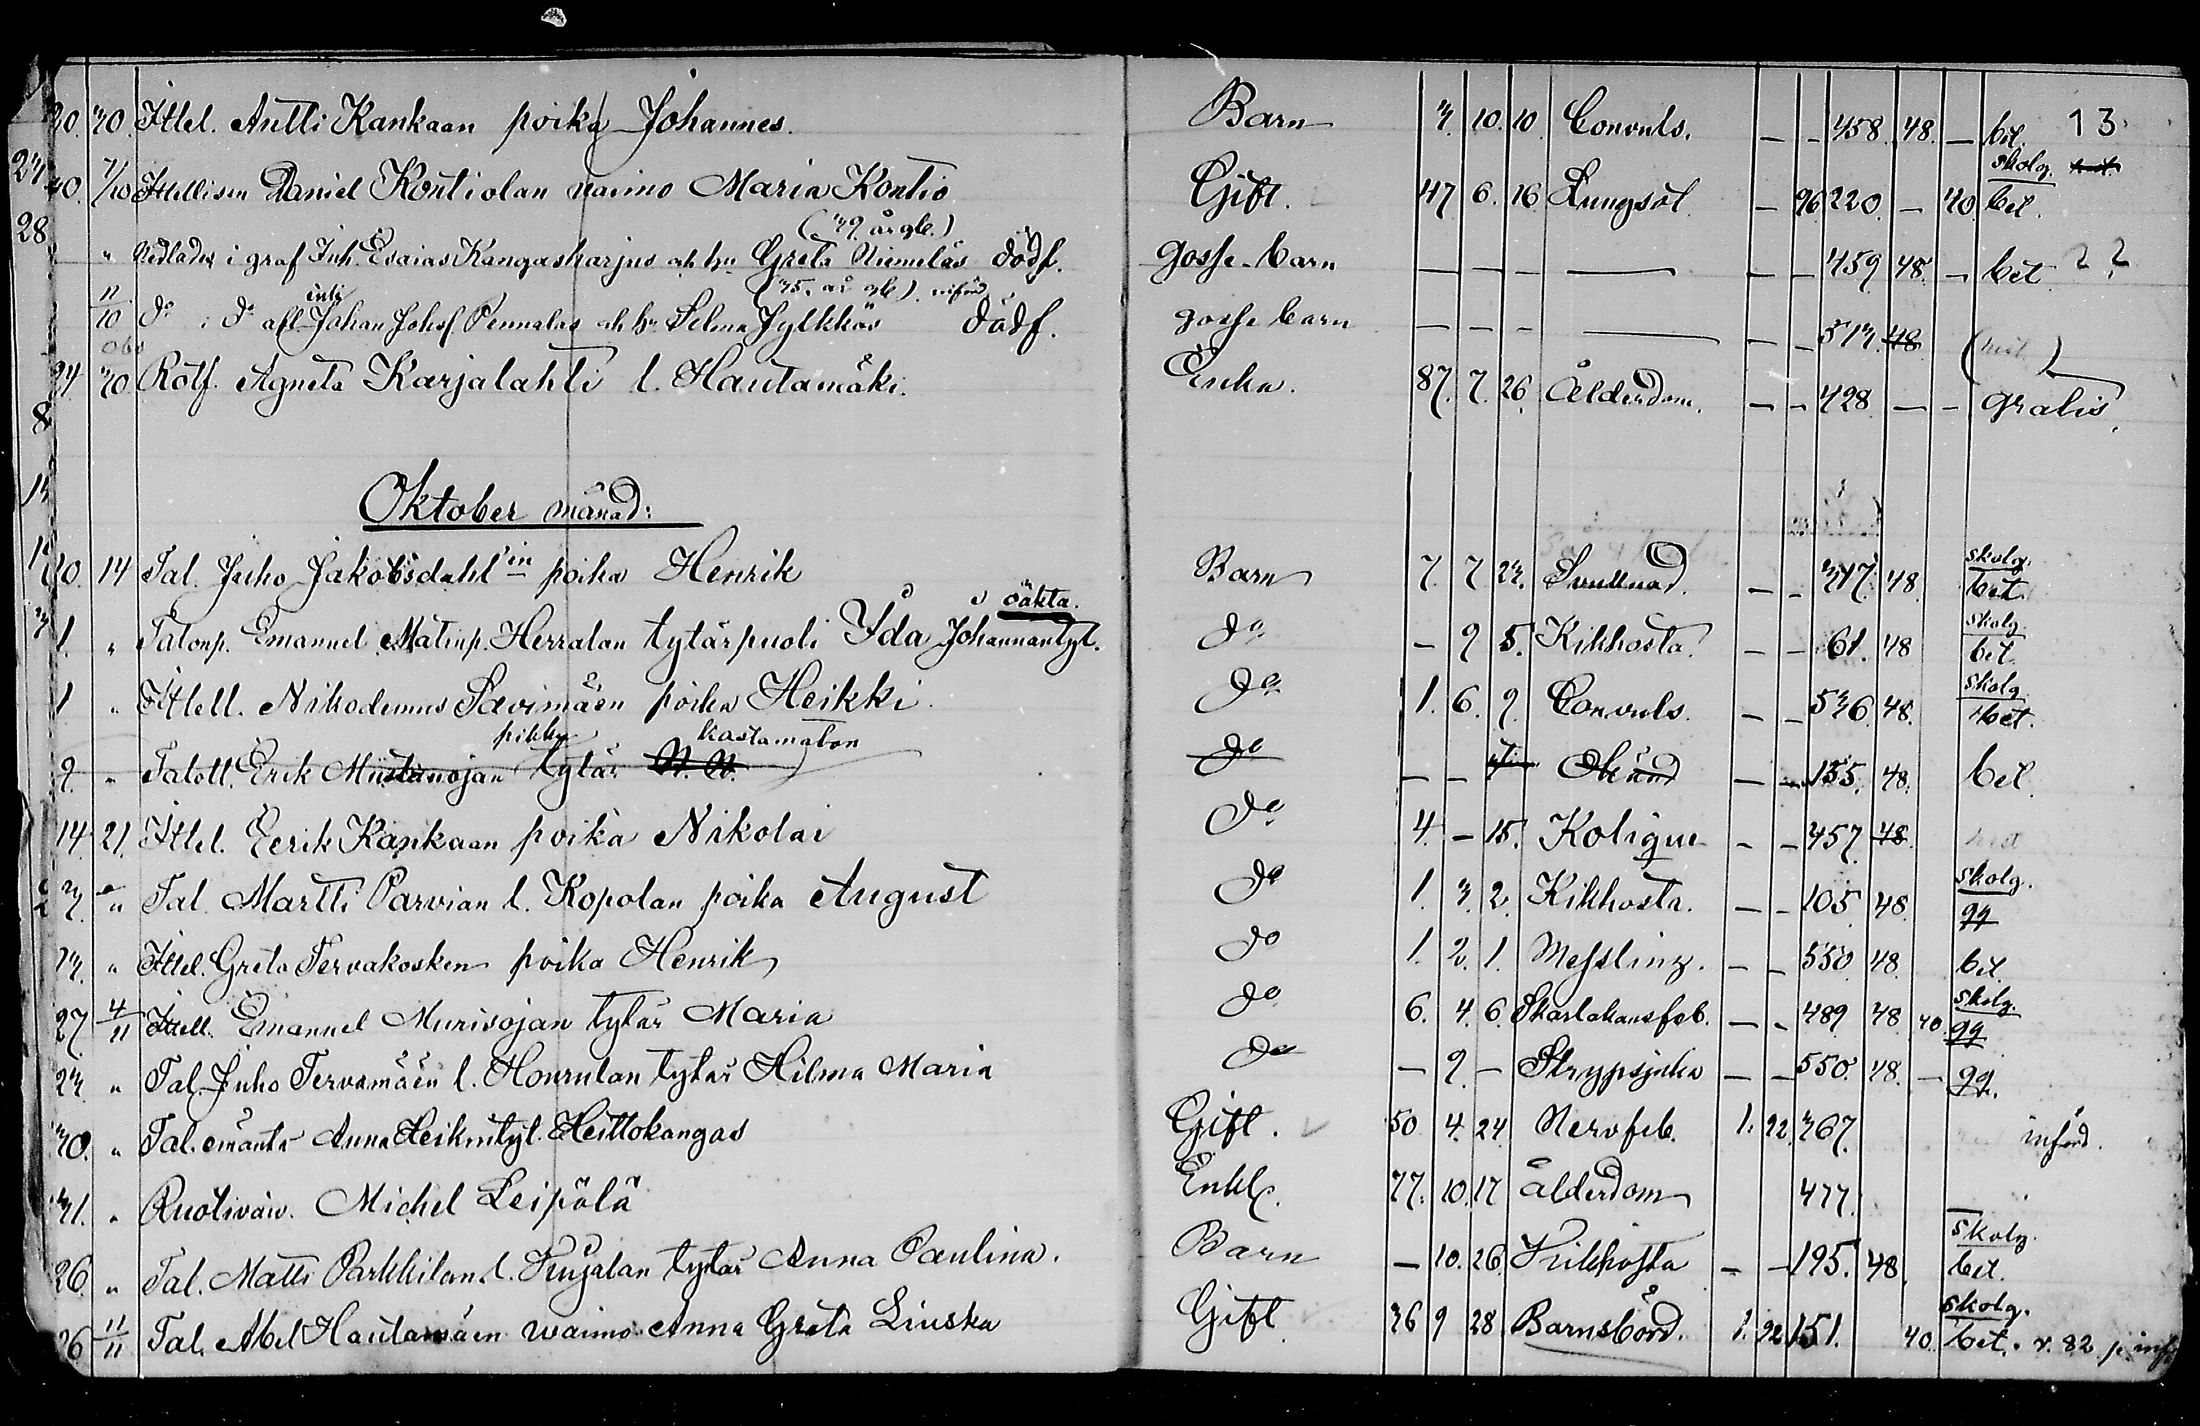 20. 30 Ittel. Antti Kankaan poika Johannes. Barn 3. 10. 10. Convuls. — — 458. 48. — bet. 13
30. 7/10 Itellisen Daniel Kontiolan vaimo Maria Kontio Gift. 47 6. 16. Lungsot — 96 220. — 40. skolg. bet.
(39. år gl.)
" Nedlades i graf Inh. Esaias Kangasharjus och hu Greta Niemeläs dödf. gosse-barn — — — — — — 459 48. — bet 2 2
(35. år gl.) införd
11/10 do i do afl. Johan Johsf. Pennalas och hu Selma Jylkkäs dödf. gosse barn — — — — — — 513. 48
obs
24. 30. Rotf. Agneta Karjalahti l. Hautamäki. Enka. 87. 7. 26. Ålderdom. — — 428 — — gratis.
Oktober månad:
20. 14 Tal. Juho Jakobsdahl'in poika Henrik Barn 7. 7 23. — — 317. 48. skolg. bet.
oäkta.
1. " Talonp. Emanuel Matinp. Herralan tytärpuoli Ida Johannantyt. do — 9 5. Kikhosta. — — 61. 48 skolg. bet.
1 " Itell. Nikodemus Savimäen poika Heikki. do 1. 6. 9. Convuls. — — 536. 48. skolg. bet.
pikku kastamaton
9. " Taloll. Erik Mustanojan tytär N. N. do — — Okänd — — 155. 48. bet.
14. 21. Itel. Eerik Kankaan poika Nikolai do 4. — 15. Kolique — — 457. 48.
3. " Tal. Martti Parvian l. Kopolan poika August do 1. 3. 2. Kikhosta. — — 105. 48. skolg. gg
23. " Ittel. Greta Tervakosken poika Henrik do 1. 2. 1. Messling. — — 550 48. bet
27. 4/11 Itell. Emanuel Murisojan tytär Maria do 6. 4. 6. Skarlakansfeb. — — 489 48. 40. skolg. gg
23. " Tal. Juho Tervamäen l. Hourulan tytär Hilma Maria do — 9. — Strypsjuka — — 550. 48. — gg.
30. " Tal. emäntä Anna Heikintyt. Heittokangas Gift. 50 4. 24 Nervfeb. 1. 92. 367. införd.
31. " Ruotivaiv. Michel Leipälä Enkl. 77. 10. 17 Ålderdom 477.
26. " Tal. Matti Parkkilan l. Kujalan tytär Anna Paulina. Barn — 10. 26. Kikhosta — — 195. 48. skolg. bet.
26 11/11 Tal. Abel Hautamäen waimo Anna Greta Liuska Gift 36 9 28. Barnsbörd. 1. 92 151. 40. skolg. bet. v. 82 p.